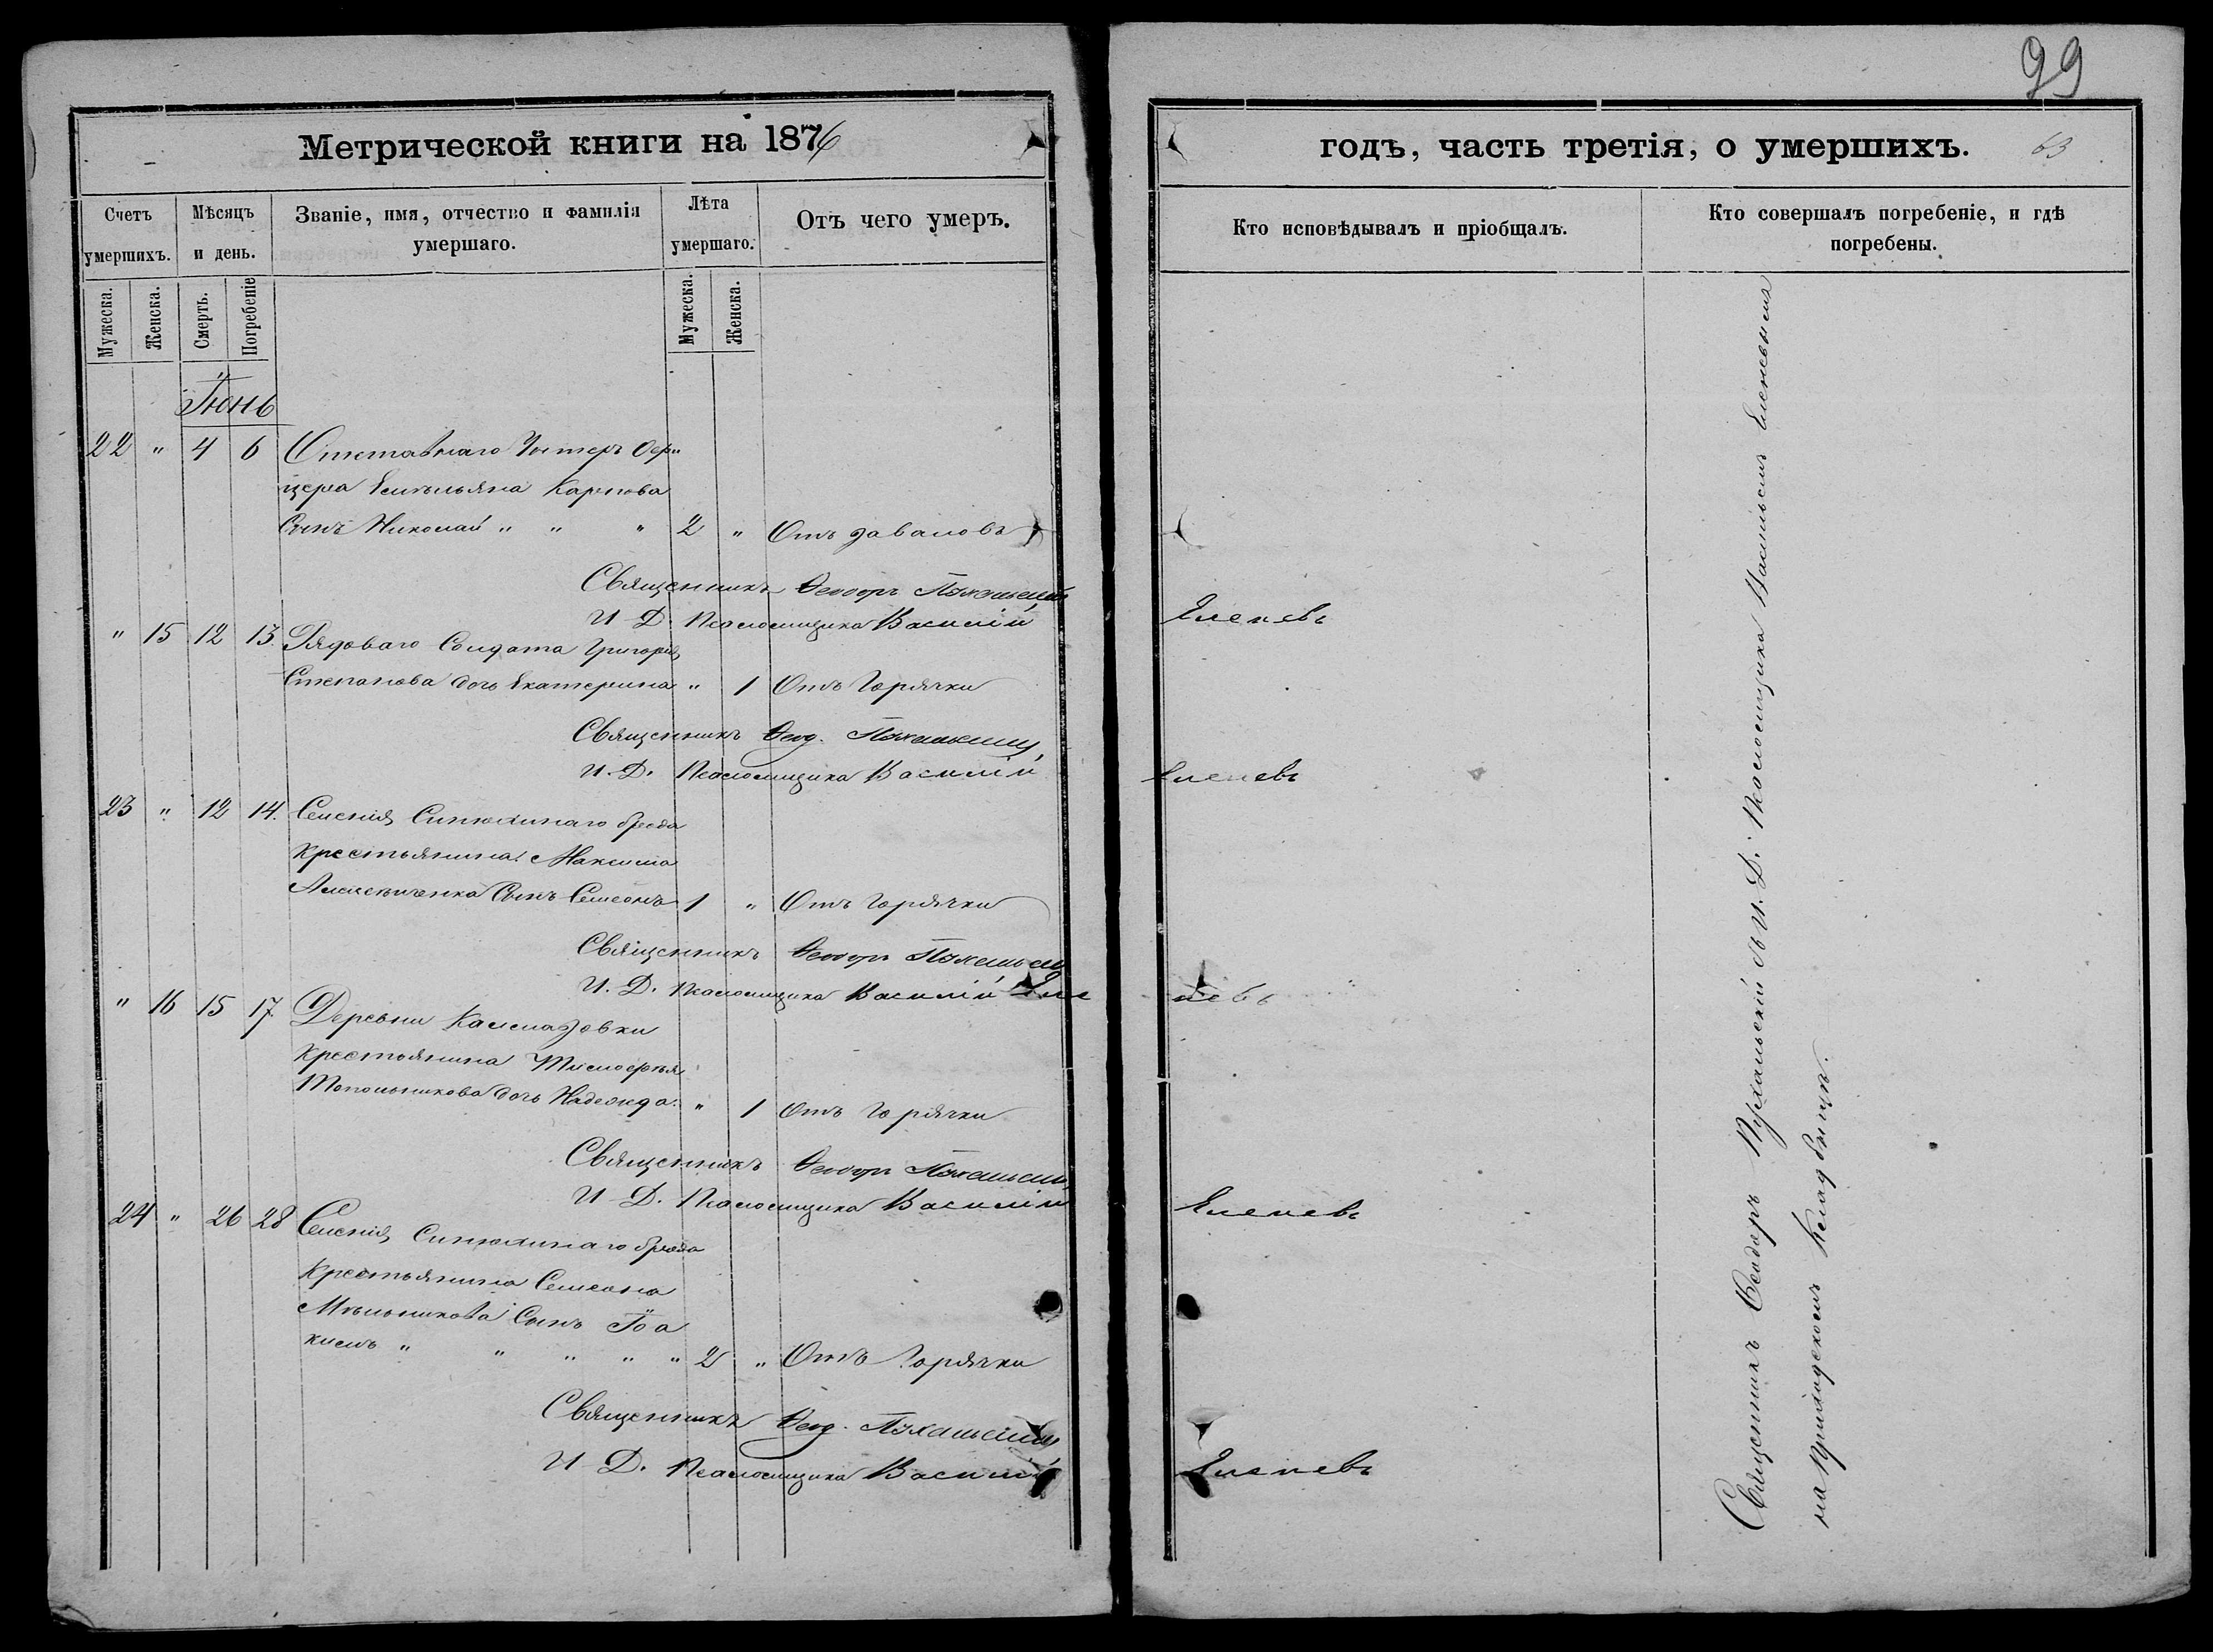 99
Метрической книги на 1876
годъ, часть третія, о умершихъ. 63
Счетъ умершихъ.
Мѣсяцъ и день.
Званіе, имя, отчество и фамилія умершаго.
Лѣта умершаго.
Отъ чего умеръ.
Кто исповѣдывалъ и пріобщалъ.
Кто совершалъ погребеніе, и гдѣ погребены.
Мужеска. Женска. Смерть. Погребеніе Мужеска. Женска.
Іюнь
22 " 4 6 Отставнаго Унтеръ Офи
цера Емельяна Карпова
Сынъ Николай " " " 2 " Отъ заваловъ
Священникъ Феодоръ
И. Д. Псаломщика Василій Еленевъ
" 15 12 13. Рядоваго Солдата Григорія
Степанова дочь Екатерина " 1 Отъ Горячки
Священникъ Феод.
И. Д. Псаломщика Василій Еленевъ
23 " 12 14. Селенія Синюхинаго брода
крестьянина Максима
Сынъ Симеонъ 1 " Отъ Горячки
Священникъ Феодоръ
И. Д. Псаломщика Василій Еленевъ
" 16 15 17. Деревни Калмазовки
крестьянина Тимофея
Топольникова дочь Надежда. " 1 Отъ Горячки
Священникъ Феодоръ
И. Д. Псаломщика Василій Еленевъ
24 " 26 28 Селенія Синюхинаго брода
Крестьянина Симеона
Мельникова Сынъ Іоа
кимъ " " " " " 2 " Отъ Горячки
Священникъ Феод.
И. Д. Псаломщика Василій Еленевъ
Священникъ Феодоръ Пухальскій и И. Д. Псаломщика Василій Еленевъ
на приходскомъ кладбищѣ.